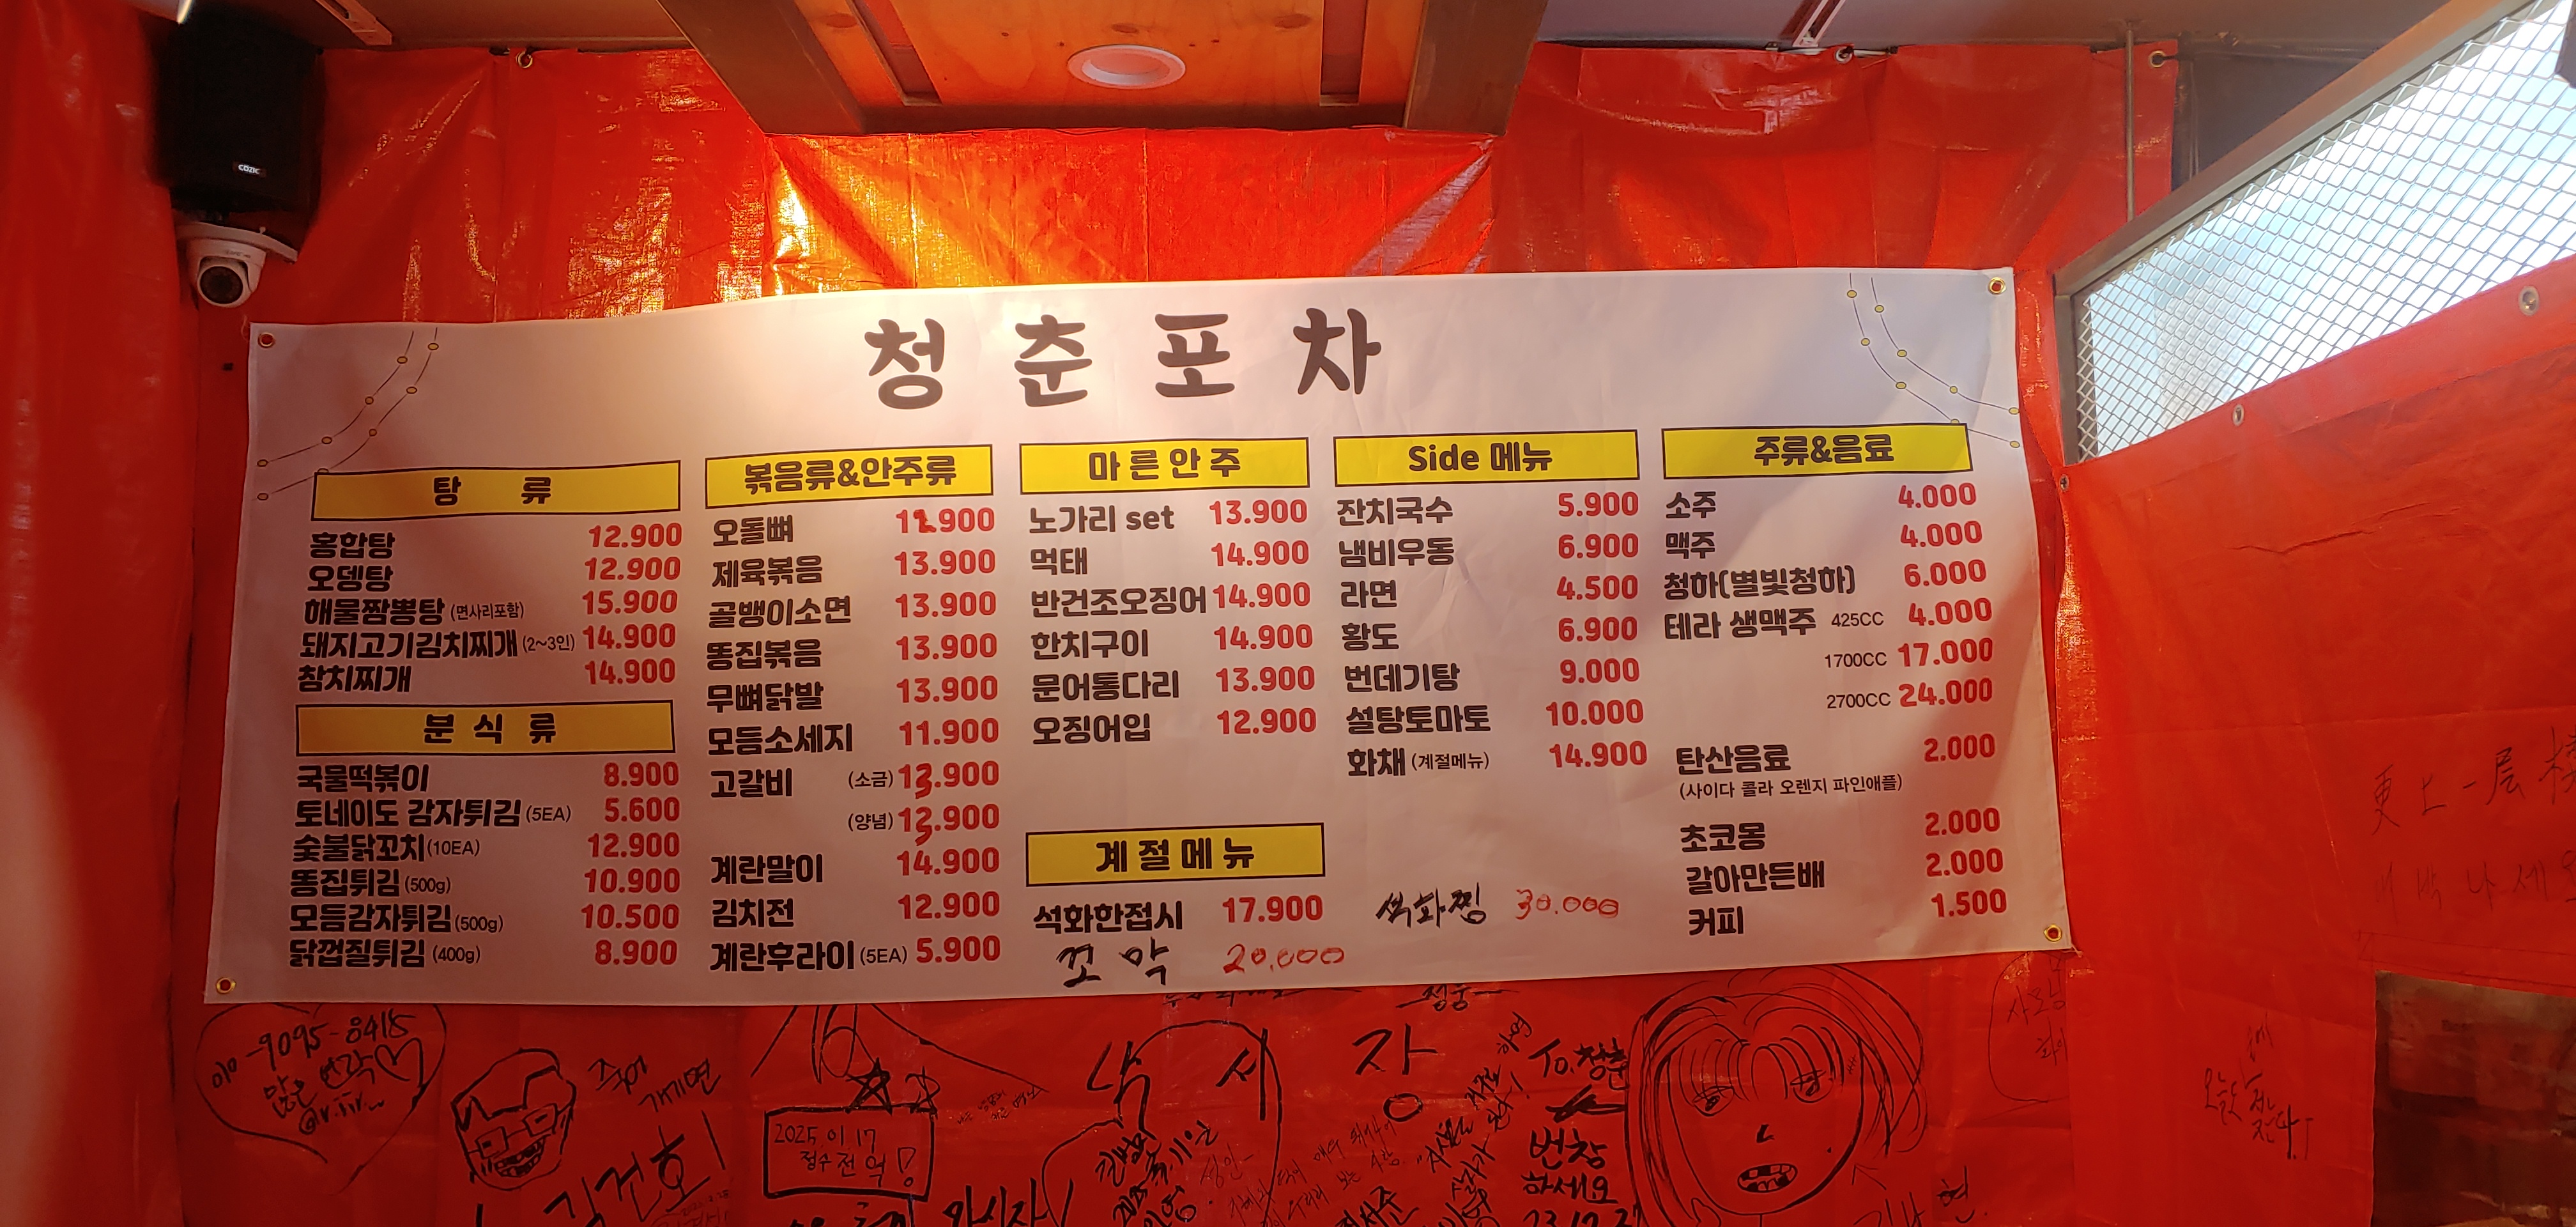 cozic
청춘포차
탕 류
홍합탕 12.900
오뎅탕 12.900
해물짬뽕탕 (면사리포함) 15.900
돼지고기김치찌개 (2~3인) 14.900
참치찌개 14.900
분식류
국물떡볶이 8.900
토네이도 감자튀김 (5EA) 5.600
숯불닭꼬치(10EA) 12.900
똥집튀김 (500g) 10.900
모듬감자튀김(500g) 10.500
닭껍질튀김 (400g) 8.900
볶음류&안주류
오돌뼈 12.900
제육볶음 13.900
골뱅이소면 13.900
똥집볶음 13.900
무뼈닭발 13.900
모듬소세지 11.900
고갈비 (소금) 13.900
(양념) 13.900
계란말이 14.900
김치전 12.900
계란후라이 (5EA) 5.900
마른안주
노가리 set 13.900
먹태 14.900
반건조오징어 14.900
한치구이 14.900
문어통다리 13.900
오징어입 12.900
계절메뉴
석화한접시 17.900
꼬막 20,000
Side 메뉴
잔치국수 5.900
냄비우동 6.900
라면 4.500
황도 6.900
번데기탕 9.000
설탕토마토 10.000
화채 (계절메뉴) 14.900
석화찜 30.000
주류&음료
소주 4.000
맥주 4.000
청하(별빛청하) 6.000
테라 생맥주 425CC 4.000
1700CC 17.000
2700CC 24.000
탄산음료 2.000
(사이다 콜라 오렌지 파인애플)
초코몽 2.000
갈아만든배 2.000
커피 1.500
010-9095-8415
많은 연락♡
죽어
김건호
2025.01.17
전역!
낙 서 장
To.청춘
번창
하세요
更上一层
오늘은